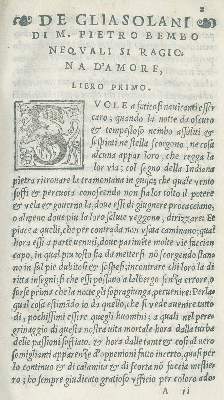 2
DE GLI ASOLANI
DI M. PIETRO BEMBO
NE QVALI SI RAGIO-
NA D'AMORE,
LIBRO PRIMO.
S VOLE a faticati nauiganti esser
caro, quando la notte da oscuro
& tempestoso nembo assaliti &
sospinti ne stella scorgono, ne cosa
alcuna appar loro, che regga la
lor via; col segno della Indiana
pietra ritrouare la tramontana in guisa, che quale vento
soffi & percuota conoscendo non sia lor tolto il potere
& vela & gouerno la, doue essi di giugnere procacciano,
o almeno doue piu la loro salute veggono, dirizzare. Et
piace a quelli, che per contrada non vsata caminano; qual
hora essi a parte venuti, doue parimente molte vie faccian
capo, in qual piu tosto sia da mettersi nō scorgendo stan-
no in sul pie dubitosi & sospesi; incontrare chi loro la di-
ritta insegni; si che essi possano a l'albergo senza errore, o
forse prima che la notte gli sopragiunga, peruenire: Per la-
qual cosa estimando io da quello, che si vede auenire tutto
di, pochissimi essere quegli huomini; a quali nel pere-
grinaggio di questa nostra vita mortale hora dalla turba
delle passioni soffiato, & hora dalle tante & cosi al vero
somiglianti apparenze d'oppenioni fatto incerto, quasi per
lo continuo & di calamita & di scorta nō faccia mestie-
ro; ho sempre giudicato gratioso vfficio per coloro ado-
A ii